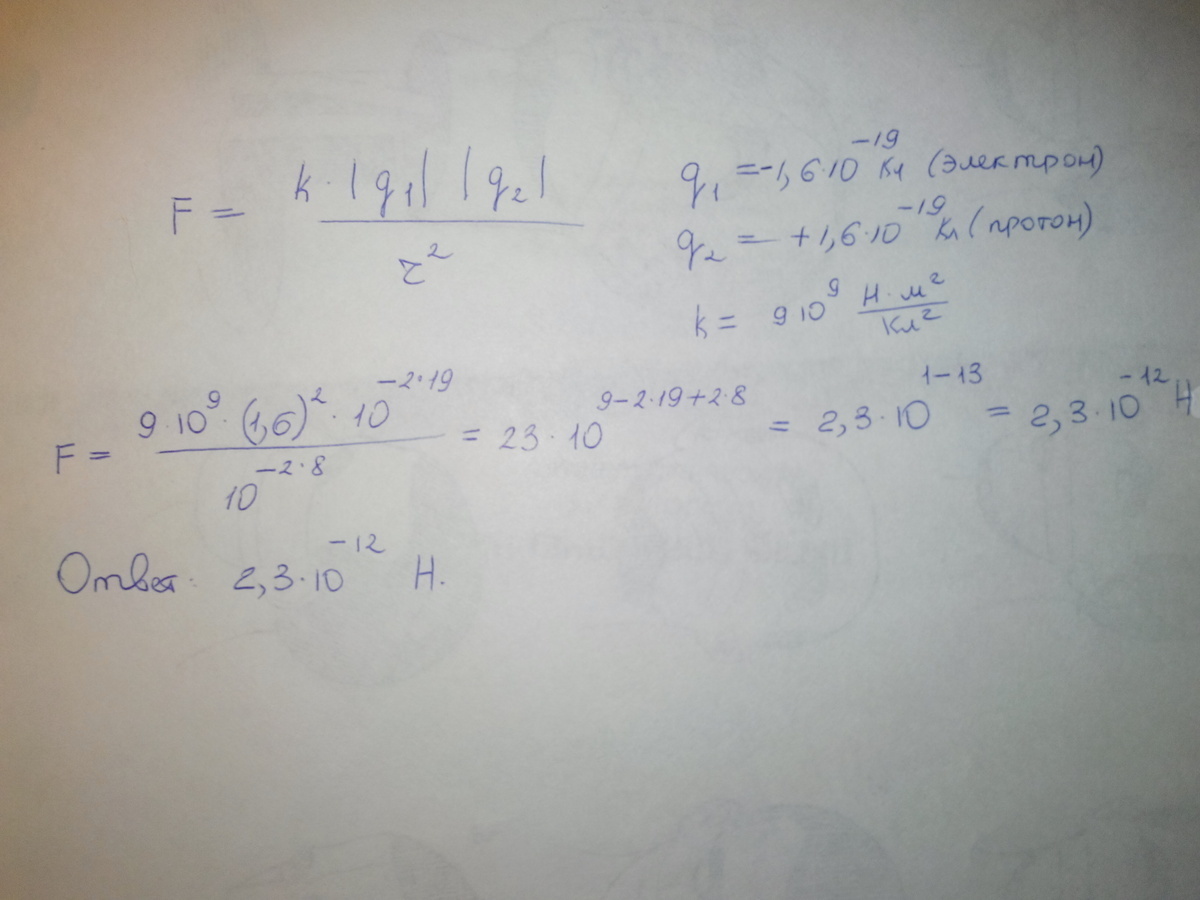 F = k · |q₁| |q₂| / r²
q₁ = -1,6·10⁻¹⁹ Кл (электрон)
q₂ = +1,6·10⁻¹⁹ Кл (протон)
k = 9 10⁹ Н·м²/Кл²
F = 9·10⁹·(1,6)²·10⁻²·¹⁹ / 10⁻²·⁸ = 23·10⁹⁻²·¹⁹⁺²·⁸ = 2,3·10¹⁻¹³ = 2,3·10⁻¹² Н
Ответ: 2,3·10⁻¹² Н.